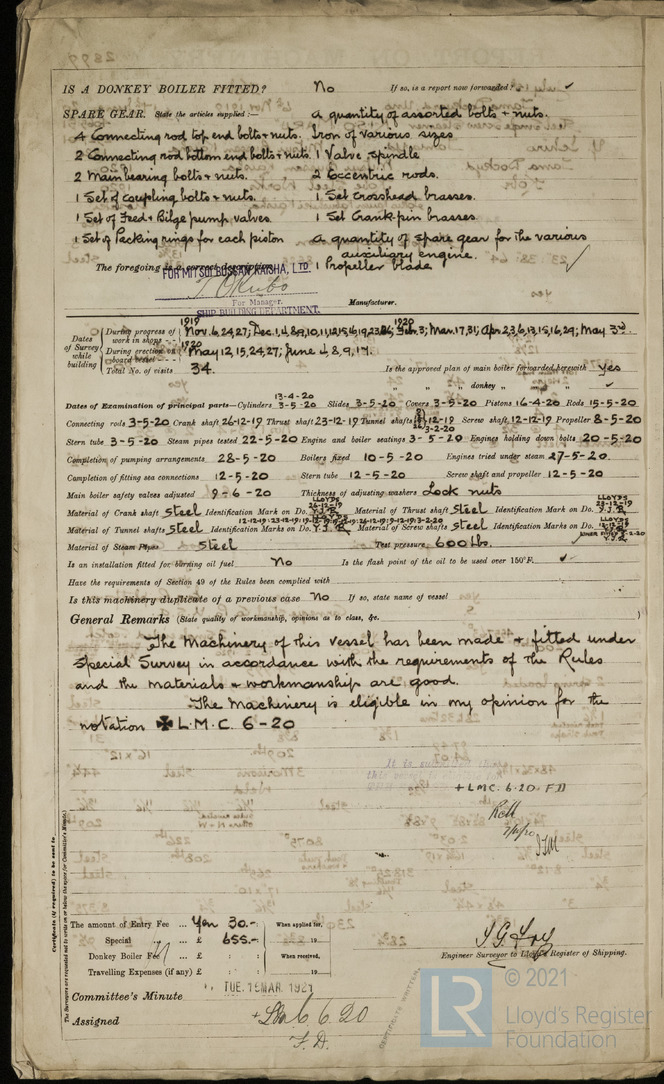 IS A DONKEY BOILER FITTED? No If so, is a report now forwarded? ✓
SPARE GEAR. State the articles supplied:— a quantity of assorted bolts + nuts.
4 Connecting rod top end bolts + nuts. Iron of various sizes
2 Connecting rod bottom end bolts + nuts. 1 Valve spindle
2 Main bearing bolts + nuts. 2 Eccentric rods.
1 Set of coupling bolts + nuts. 1 Set crosshead brasses.
1 Set of Feed + Bilge pump valves. 1 Set Crank-pin brasses.
1 Set of Packing rings for each piston a quantity of spare gear for the various
auxiliary engine.
The foregoing is a correct description, 1 Propeller blade
FOR MITSUI BUSSAN KAISHA, LTD
T. Okubo
For Manager. Manufacturer.
SHIP BUILDING DEPARTMENT.
Dates of Survey while building
During progress of work in shops - 1919 Nov. 6, 24, 27; Dec. 1, 4, 8, 9, 10, 11, 12, 15, 16, 19, 23, 26; 1920 Feb. 3; Mar. 17, 31; Apr. 2, 3, 6, 13, 15, 16, 29; May 3rd.
During erection on board vessel - 1920 May 12, 15, 24, 27; June 4, 8, 9, 17.
Total No. of visits 34. Is the approved plan of main boiler forwarded herewith Yes
" " " donkey " " " ✓
Dates of Examination of principal parts—Cylinders 13-4-20 3-5-20 Slides 3-5-20 Covers 3-5-20 Pistons 16-4-20 Rods 15-5-20
Connecting rods 3-5-20 Crank shaft 26-12-19 Thrust shaft 23-12-19 Tunnel shafts 12-19 3-2-20 Screw shaft 12-12-19 Propeller 8-5-20
Stern tube 3-5-20 Steam pipes tested 22-5-20 Engine and boiler seatings 3-5-20 Engines holding down bolts 20-5-20
Completion of pumping arrangements 28-5-20 Boilers fixed 10-5-20 Engines tried under steam 27-5-20.
Completion of fitting sea connections 12-5-20 Stern tube 12-5-20 Screw shaft and propeller 12-5-20
Main boiler safety valves adjusted 9-6-20 Thickness of adjusting washers Lock nuts
Material of Crank shaft Steel Identification Mark on Do. LLOYDS 26-12-19 Y.J.R Material of Thrust shaft Steel Identification Mark on Do. LLOYDS 23-12-19 Y.J.R
Material of Tunnel shafts Steel Identification Marks on Do. Y.J.R Material of Screw shafts Steel Identification Marks on Do. LLOYDS Y.J.R
Material of Steam Pipes Steel Test pressure 600 lbs.
Is an installation fitted for burning oil fuel No Is the flash point of the oil to be used over 150°F. ✓
Have the requirements of Section 49 of the Rules been complied with
Is this machinery duplicate of a previous case No If so, state name of vessel
General Remarks (State quality of workmanship, opinions as to class, &c.
The Machinery of this vessel has been made + fitted under
Special Survey in accordance with the requirements of the Rules
and the materials + workmanship are good.
The Machinery is eligible in my opinion for the
notation ✠ L.M.C. 6-20
+ LMC. 6.20. FD
The amount of Entry Fee ... Yen 30.- When applied for,
Special ... £ 655.- 19
Donkey Boiler Fee ... £ : : When received,
Travelling Expenses (if any) £ : : 19
Engineer Surveyor to Lloyd's Register of Shipping.
Committee's Minute TUE. 15 MAR. 1921
Assigned + LMC 6.20
F.D.
CERTIFICATE WRITTEN.
Certificate (if required) to be sent to
The Surveyors are requested not to write on or below the space for Committee's Minute.
LR
© 2021
Lloyd's Register
Foundation